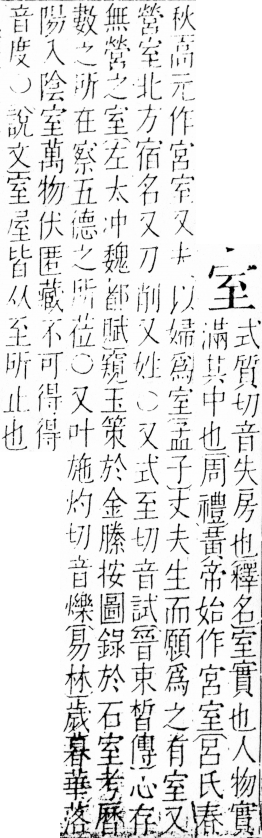 室
式質切音失房也釋名室實也人物實
滿其中也周禮黃帝始作宮室呂氏春
秋高元作宮室又夫以婦爲室孟子丈夫生而願爲之有室又
營室北方宿名又刀削又姓○又式至切音試晉束晳傳心存
無營之室左太冲魏都賦窺玉策於金縢按圖錄於石室考曆
數之所在察五德之所莅○又叶施灼切音爍易林歲暮華落
陽入陰室萬物伏匿藏不可得得
音度○說文室屋皆从至所止也